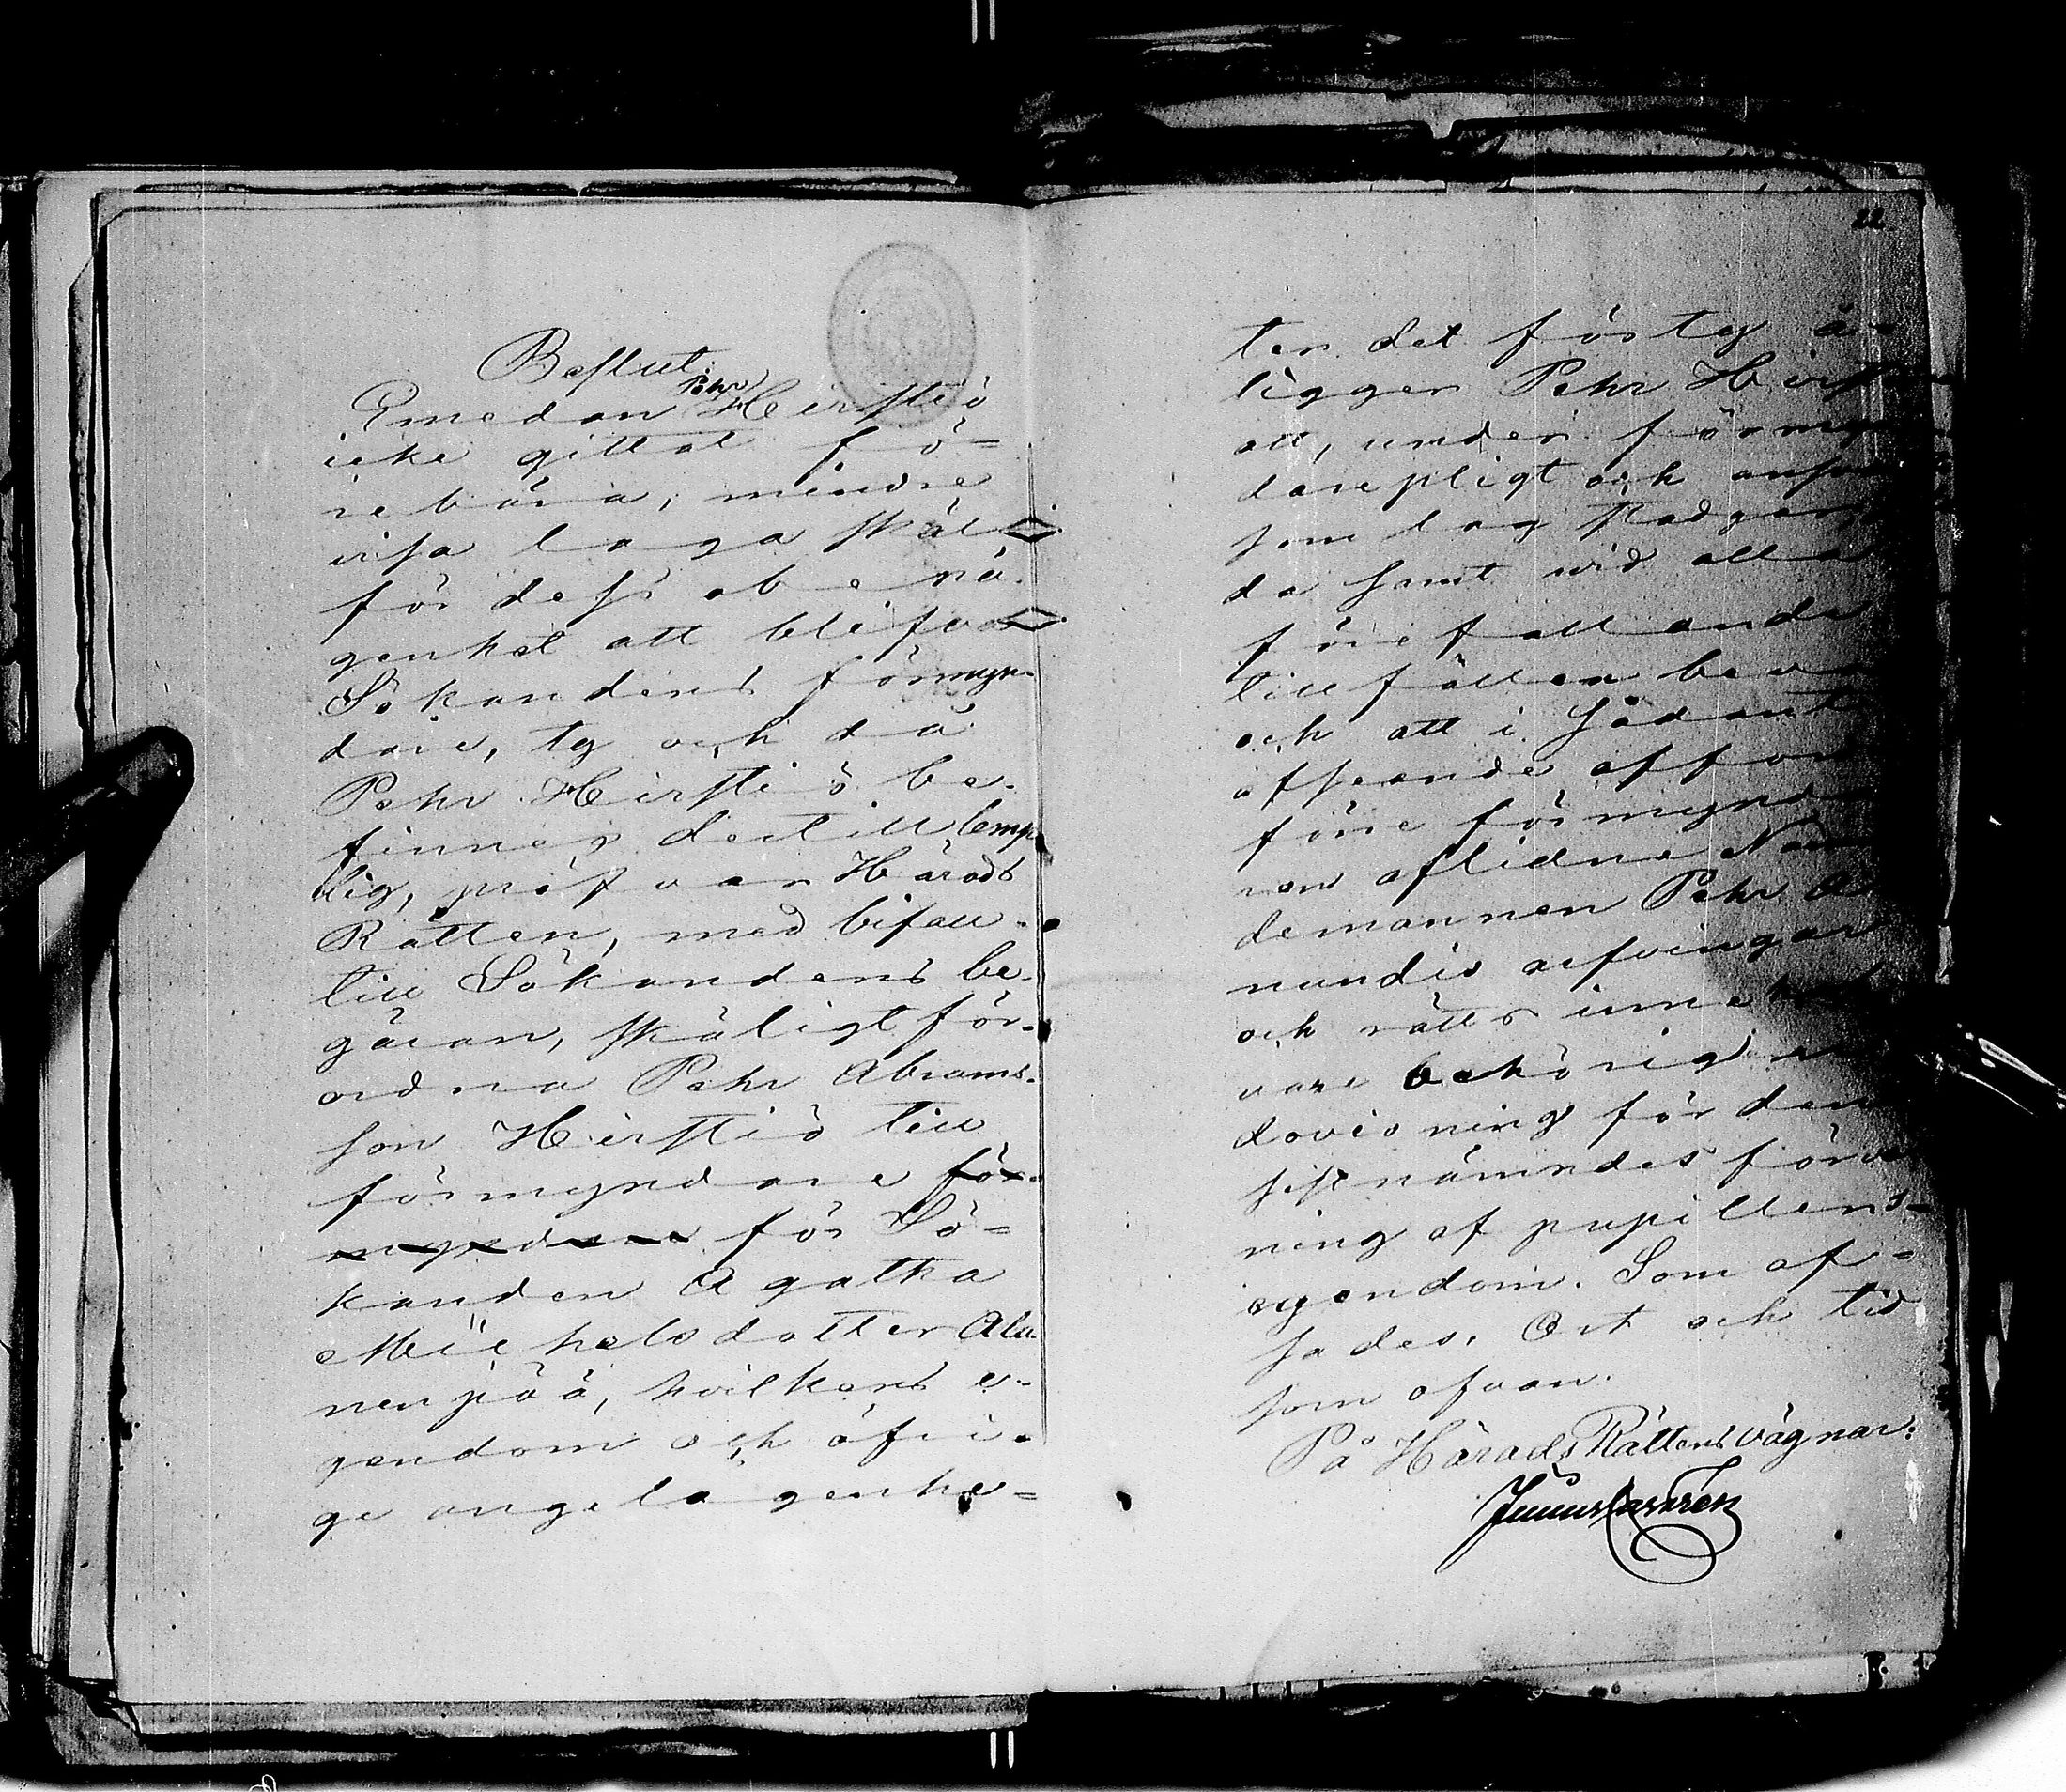 Beslut:
Emedan Pehr Heirstiö
icke gittat fö=
rebära, mindre
visa laga skäl
för dess obenä-
genhet att blifva
Sökandens förmyn-
dare, ty och då
Pehr Heirstiö be-
finnes dertill lämp-
lig, pröfvar Härads
Rätten, med bifall
till Sökandens be-
gäran, skäligt för-
ordna Pehr Abrams-
son Heirstiö till
förmyndare för-
myndare för Sö=
kanden Agatha
Michelsdotter Ala-
nenpää, hvilkens e-
gendom och öfri-
ge angelägenhe=
22
ten det förty å-
ligger Pehr Heirstiö
att, under förmyn-
darepligt och ansvar
som lag stadgar
da samt vid alla
förefallande
tillfällen beva
och att i sådant
afseende affor
före förmynda
ren aflidne Näm
demannen Pehr
nundis arfvingar
och rätts inneha
vare behörig re
dovisning för den
sistnämndes förva
ning af pupillens
egendom. Som af=
sades. Ort och tid
som ofvan.
På Härads Rättens vägnar: